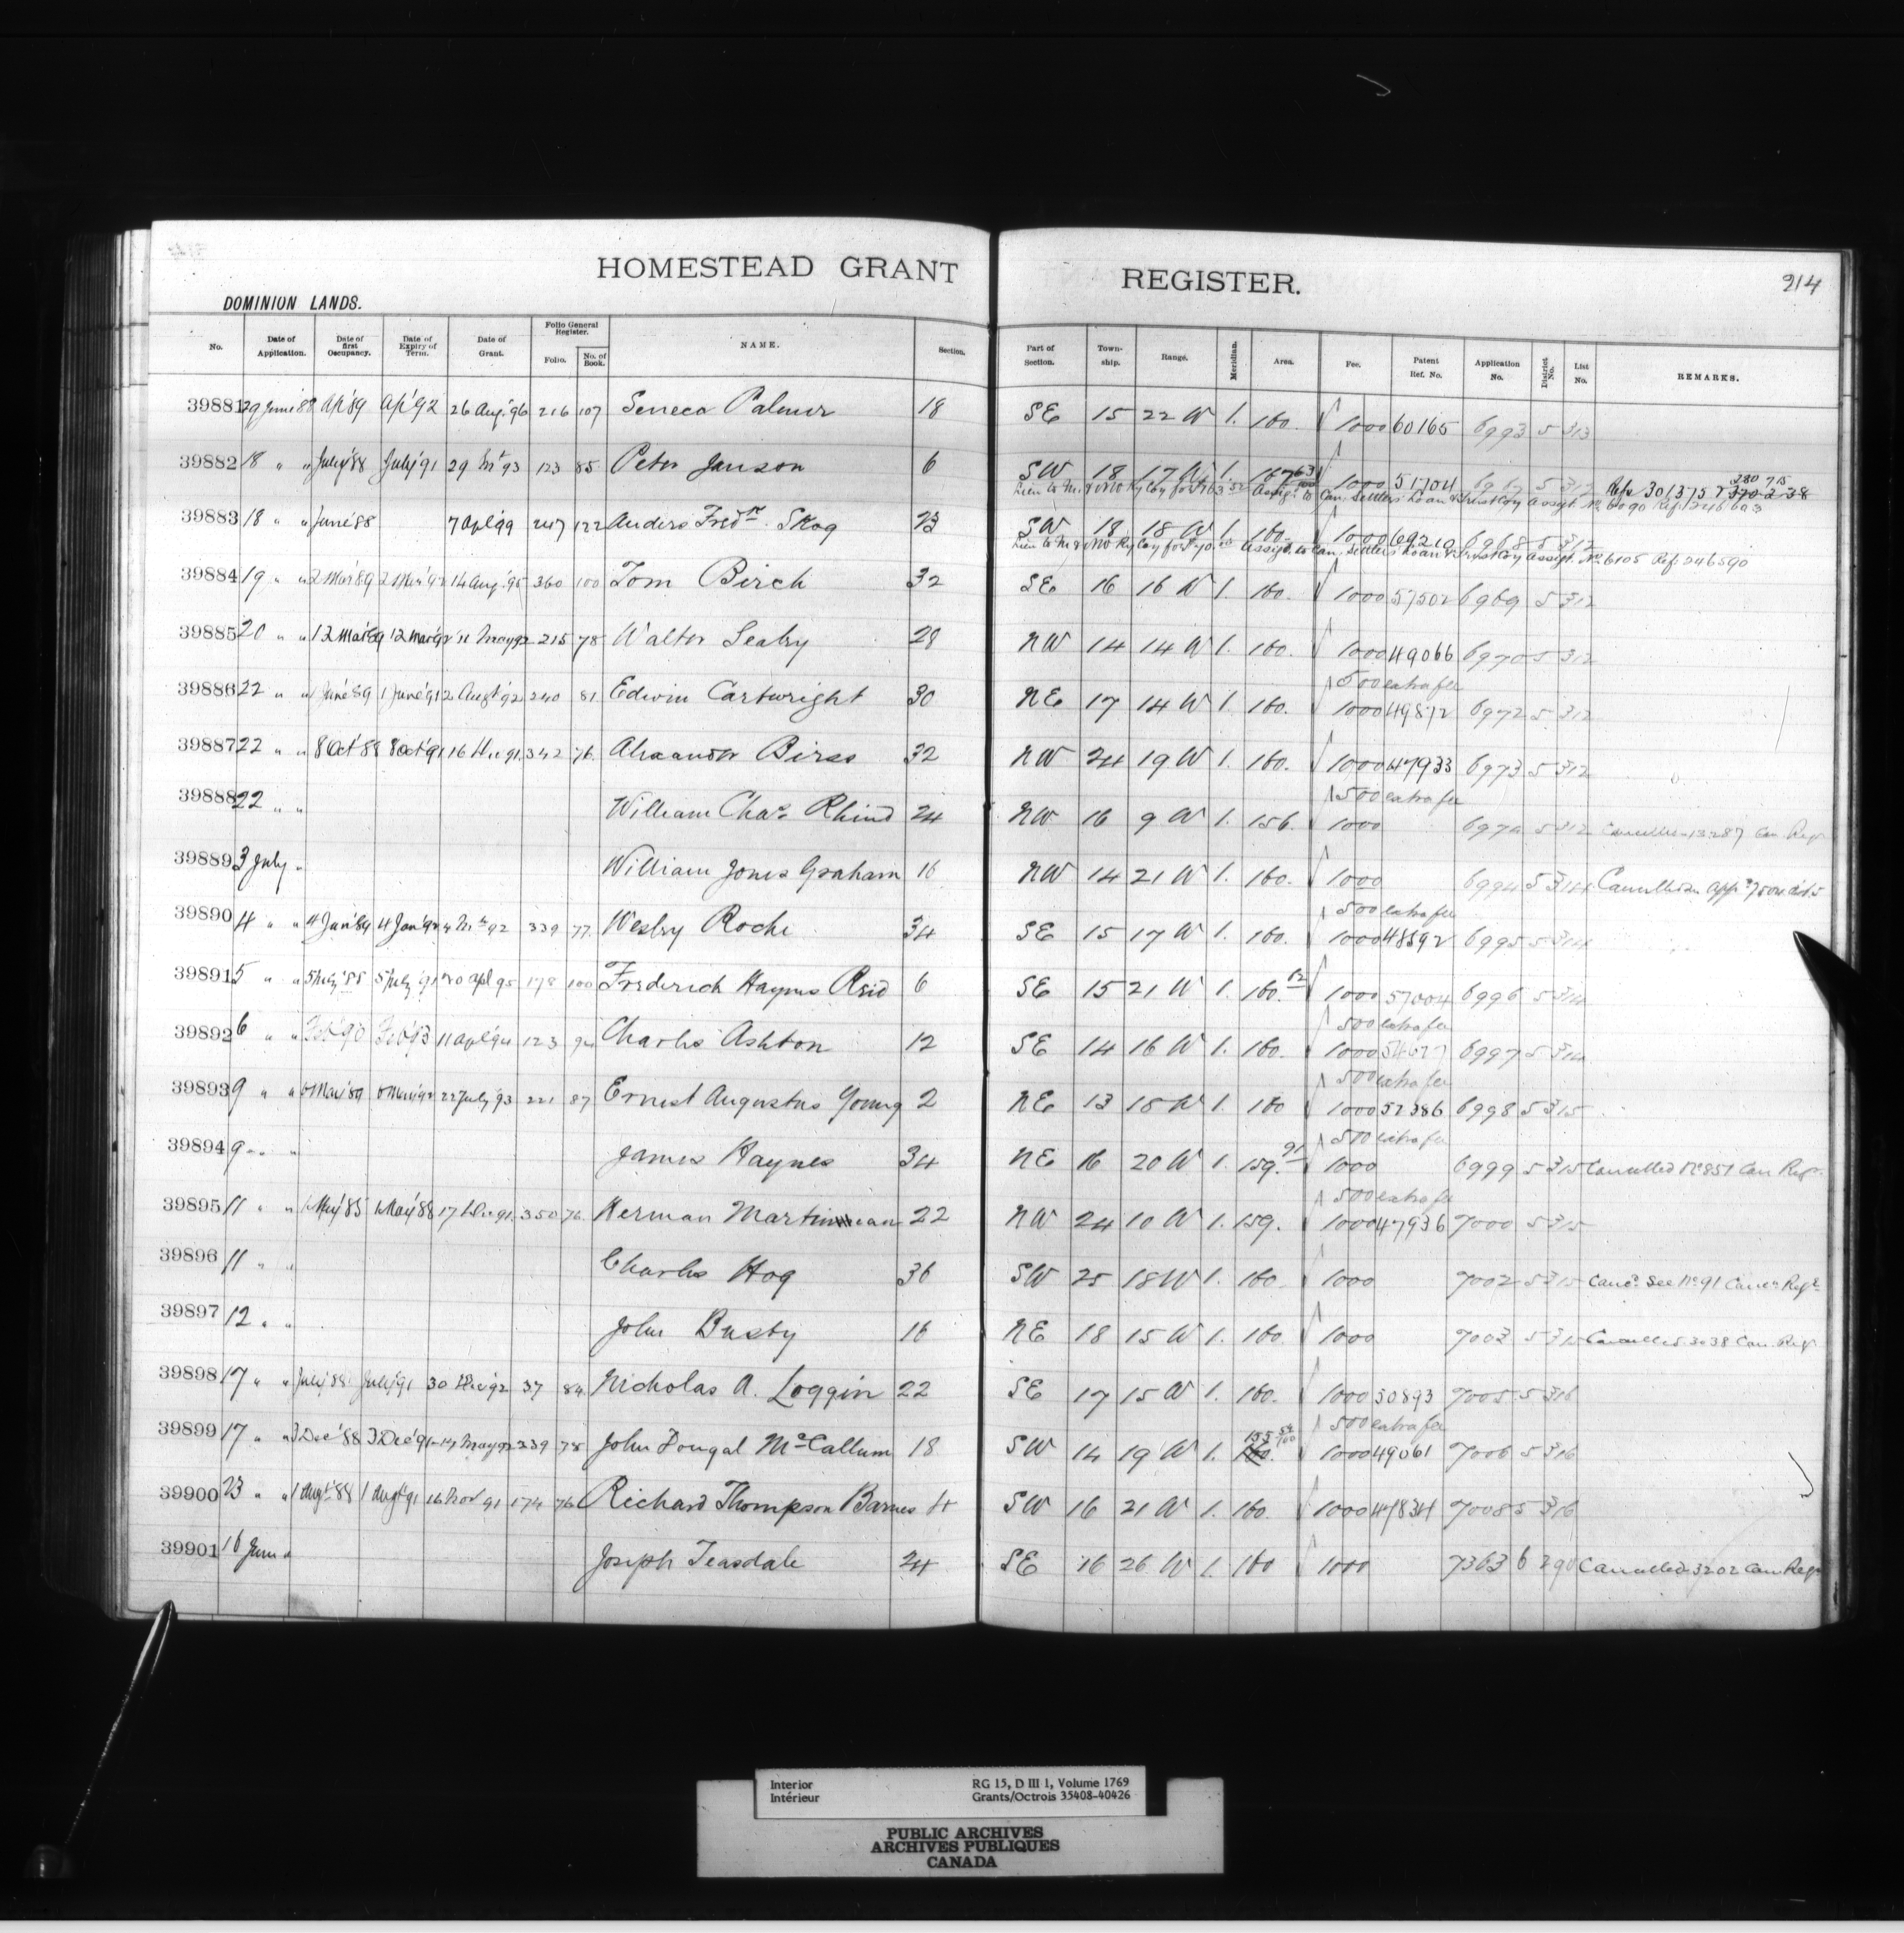 HOMESTEAD GRANT REGISTER. 214
DOMINION LANDS.
No. Date of Application. Date of first Occupancy. Date of Expiry of Term. Date of Grant. Folio General Register. Folio. No. of Book. NAME. Section. Part of Section. Township. Range. Meridian. Area. Fee. Patent Ref. No. Application No. District No. List No. REMARKS.
39881 29 June 88 Ap '89 Ap '92 26 Aug. '96 216 107 Seneca Palmer 18 SE 15 22 W 1. 160. 1000 60165 6993 5 313
39882 18 " " July '88 July '91 29 Mr '93 123 85 Peter Janson 6 SW 18 17 W 1. 1000 51704 5 312
Lien to M. & NW Ry Coy for Assigt. to Can. Settlers' Loan & Trust Coy Assigt. No. 6090 Ref. 246603
39883 18 " " June '88 7 Apl '99 247 122 Anders Fredk. Skog 23 SW 18 18 W 1. 160. 1000 69210 6968 5 312
Lien to M & NW Ry Coy for Assigt. to Can. Settlers' Loan & Trust Coy Assigt. No. 6105 Ref. 246590
39884 19 " " 2 Mar '89 2 Mar '92 14 Aug. '95 360 100 Tom Birch 32 SE 16 16 W 1. 160. 1000 57502 6969 5 312
39885 20 " " 12 Mar '89 12 Mar '92 11 May 92 215 78 Walter Sealry 28 NW 14 14 W 1. 160. 1000 49066 6970 5 312
500 extra fee
39886 22 " " 1 June '89 1 June '91 2 Augt '92 240 81 Edwin Cartwright 30 NE 17 14 W 1. 160. 1000 49872 6972 5 312
39887 22 " " 8 Oct '88 8 Oct '91 16 Dec 91. 342 76. Alexander Birss 32 NW 24 19 W 1. 160. 1000 47933 6973 5 312
500 extra fee
39888 22 " " William Chas. Rhind 24 NW 16 9 W 1. 156. 1000 6974 5 312 Cancelled 13287 Can. Regr
39889 3 July " William Jones Graham 16 NW 14 21 W 1. 160. 1000 6994 5 314 Cancelled App. 7504
500 extra fee
39890 4 " " 4 Jan '89 4 Jan '92 4 Mr 92 339 77. Wesley Roche 34 SE 15 17 W 1. 160. 1000 48592 6995 5 314
39891 5 " " 5 July '88 5 July '91 20 Apl 95 178 100 Frederick Haynes Reid 6 SE 15 21 W 1. 160. 12 1000 57004 6996 5 314
500 extra fee
39892 6 " " Feb '90 Feb '93 11 Apl '94 123 94 Charles Ashton 12 SE 14 16 W 1. 160. 1000 54677 6997 5 314
500 extra fee
39893 9 " " Mar '89 Mar '92 22 July '93 221 87 Ernest Augustus Young 2 NE 13 18 W 1. 160 1000 52386 6998 5 315
500 extra fee
39894 9 " " James Haynes 34 NE 16 20 W 1. 159. 91 1000 6999 5 315 Cancelled No 851 Can. Regr.
500 extra fee
39895 11 " " 1 May '85 1 May '88 17 Dec 91. 350 76. Herman Martinean 22 NW 24 10 W 1. 159. 1000 47936 7000 5 315
39896 11 " " Charles Hog 36 SW 25 18 W 1. 160. 1000 7002 5 315 Canc. See No. 91 Cancn. Regr.
39897 12 " " John Busby 16 NE 18 15 W 1. 160. 1000 7003 5 315 Cancelled 3038 Can. Regr
39898 17 " " July '88 July '91 30 Dec '92 37 84 Nicholas A. Loggin 22 SE 17 15 W 1. 160. 1000 50893 7005 5 316
500 extra fee
39899 17 " " 3 Dec '88 3 Dec '91 14 May 92 239 78 John Dougal McCallum 18 SW 14 19 W 1. 155 54/100 160. 1000 49061 7006 5 316
39900 23 " " 1 Augt '88 1 Augt '91 16 Nov 91 174 76 Richard Thompson Barnes 4 SW 16 21 W 1. 160. 1000 47834 7008 5 316
39901 16 June " Joseph Teasdale 24 SE 16 26 W 1. 160 1000 7363 6 290 Cancelled 3202 Can. Regr
Interior RG 15, D III 1, Volume 1769
Intérieur Grants/Octrois 35408-40426
PUBLIC ARCHIVES
ARCHIVES PUBLIQUES
CANADA